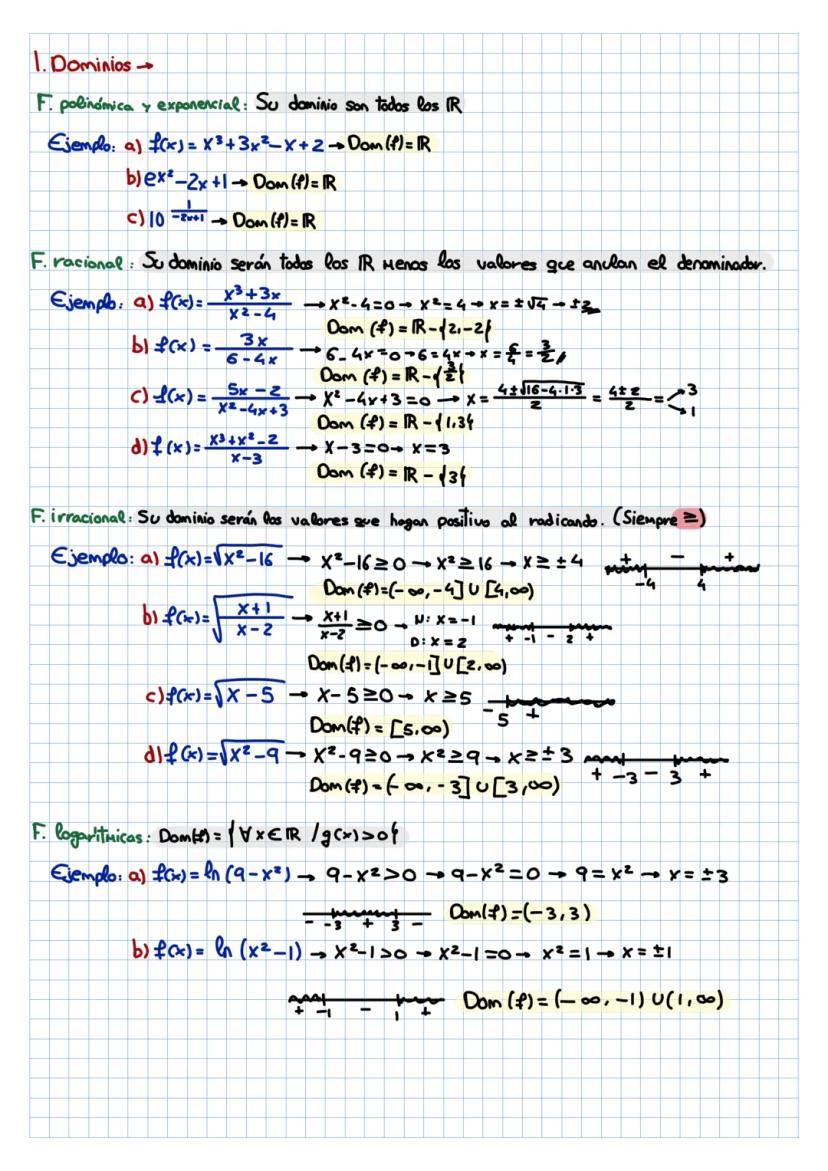 1. Dominios →
F. polinómica y exponencial: Su dominio son todos los ℝ
Ejemplo: a) f(x) = x³+3x²-x+2 → Dom(f)=ℝ
b) ex²-2x+1 → Dom(f)=ℝ
c) 10^(1/(-2x+1)) → Dom(f)=ℝ
F. racional: Su dominio serán todos los ℝ menos los valores que anulan el denominador.
Ejemplo: a) f(x)= (x³+3x)/(x²-4) → x²-4=0 → x²=4 → x=±√4 → ±2
Dom (f) = ℝ-{2,-2}
b) f(x) = 3x/(6-4x) → 6-4x=0 → 6=4x → x = 6/4 = 3/2
Dom (f) = ℝ-{3/2}
c) f(x) = (5x-2)/(x²-4x+3) → x²-4x+3=0 → x = (4±√(16-4·1·3))/2 = (4±2)/2 = 3 1
Dom (f) = ℝ-{1,3}
d) f(x) = (x³+x²-2)/(x-3) → x-3=0 → x=3
Dom (f) = ℝ-{3}
F. irracional: Su dominio serán los valores que hagan positivo al radicando. (Siempre ≥)
Ejemplo: a) f(x)=√(x²-16) → x²-16≥0 → x²≥16 → x≥±4 + - + -4 4
Dom(f)=(-∞,-4]∪[4,∞)
b) f(x)=√((x+1)/(x-2)) → (x+1)/(x-2) ≥0 → N: x=-1 D: x=2 + -1 - 2 +
Dom(f)=(-∞,-1]∪[2,∞)
c) f(x)=√(x-5) → x-5≥0 → x≥5 - 5 +
Dom(f) = [5,∞)
d) f(x)=√(x²-9) → x²-9≥0 → x²≥9 → x≥±3 + -3 - 3 +
Dom(f)=(-∞,-3]∪[3,∞)
F. logarítmicas: Dom(f) = {∀x∈ℝ /g(x)>0}
Ejemplo: a) f(x)= ln (9-x²) → 9-x²>0 → 9-x²=0 → 9=x² → x=±3
- -3 + 3 - Dom(f)=(-3,3)
b) f(x)= ln (x²-1) → x²-1>0 → x²-1=0 → x²=1 → x=±1
+ -1 - 1 + Dom (f) = (-∞,-1)∪(1,∞)